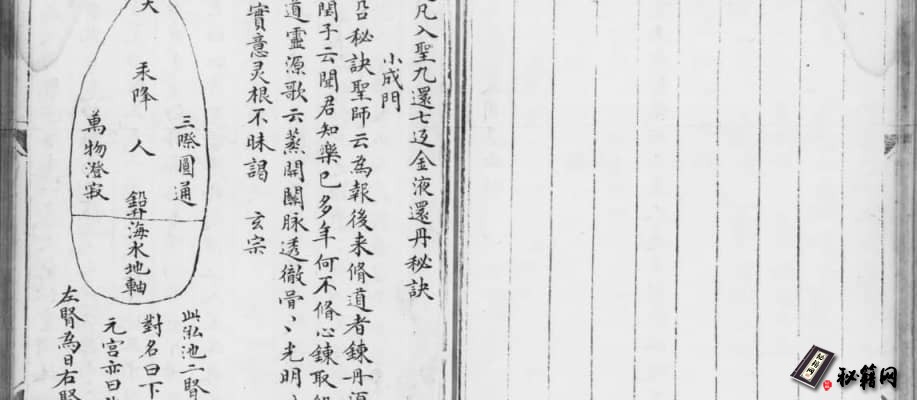 凡入聖九還七返金液還丹秘訣
小成門
秘訣聖師云為報後来脩道者鍊丹
閏子云聞君知樂已多年何不脩心鍊取
道靈源歌云蒸開關脉透徹骨〻光明
實意灵根不昧謁 玄宗
三際圓通
天
汞降
人
鉛升海水地軸
萬物澄寂
此泓池二腎
對名曰下
元宮亦曰
左腎為日右腎
秘籍网